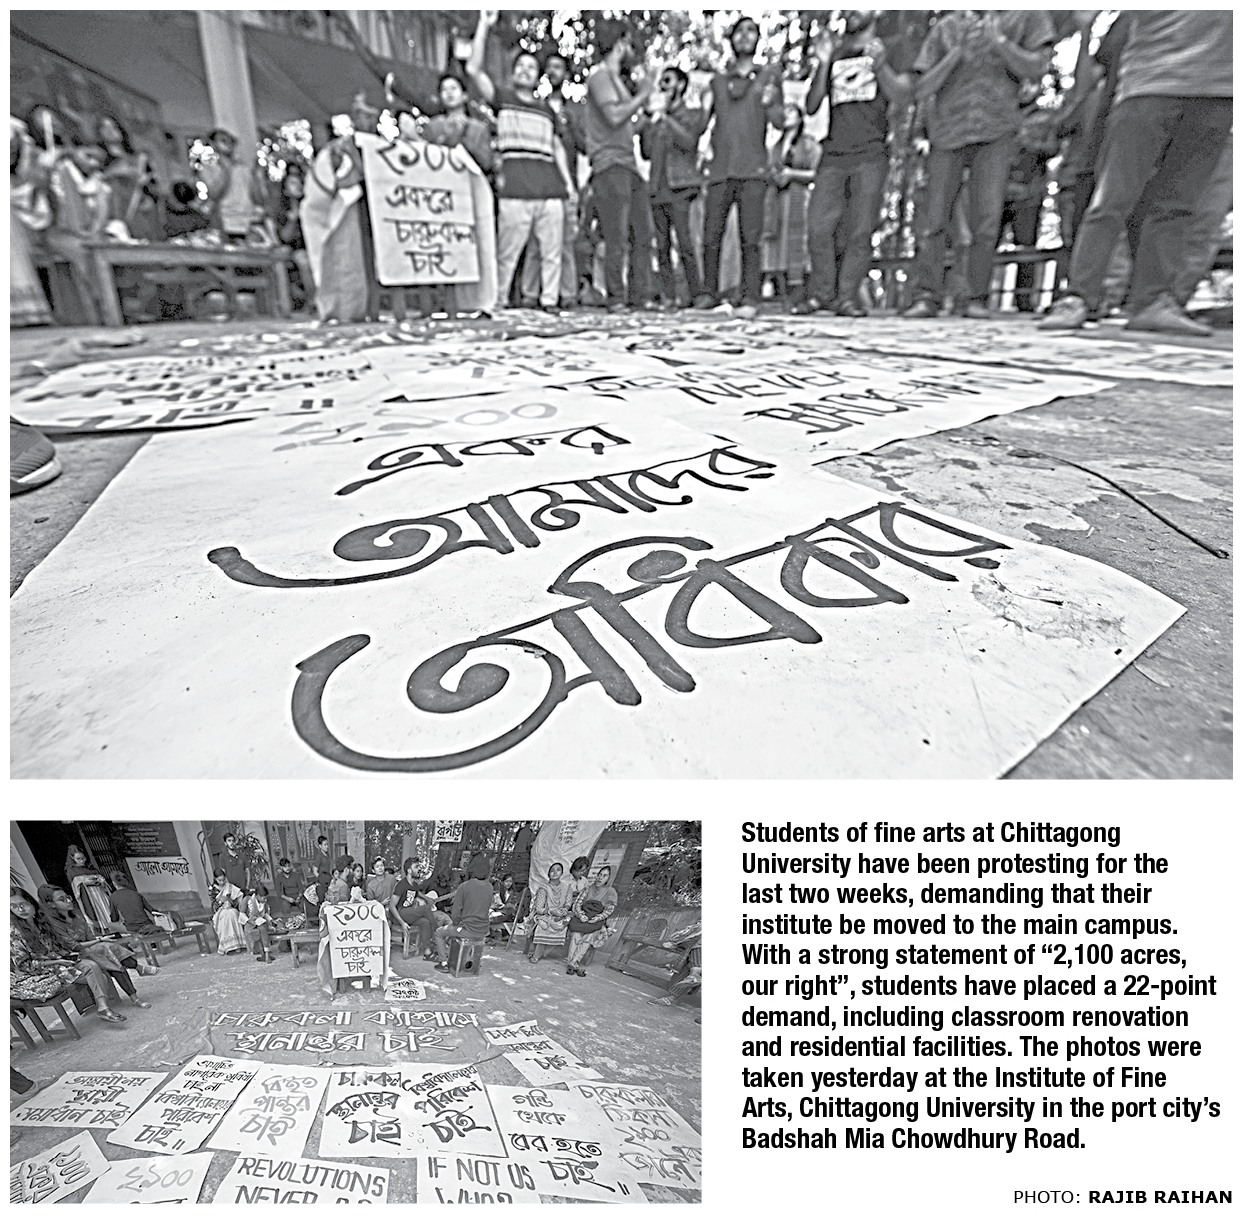 ২১০০
একরে
চারুকলা
চাই
NEVER
BACKWARD
২১০০
একর
আমাদের
অধিকার
২১০০
একরে
চারুকলা
চাই
চারুকলা ক্যাম্পাসে
স্থানান্তর চাই
স্থায়ী
সমাধান চাই
বিশ্ববিদ্যালয়ে
পরিবেশ
চাই॥
চাই
চারুকলা
স্থানান্তর
চাই
বিশ্ববিদ্যালয়ের
পরিবেশ
চাই
গন্ডি
থেকে
বের হতে
চাই॥
২১০০
২১০০
REVOLUTIONS
NEVER
IF NOT US
WHO?
Students of fine arts at Chittagong
University have been protesting for the
last two weeks, demanding that their
institute be moved to the main campus.
With a strong statement of “2,100 acres,
our right”, students have placed a 22-point
demand, including classroom renovation
and residential facilities. The photos were
taken yesterday at the Institute of Fine
Arts, Chittagong University in the port city’s
Badshah Mia Chowdhury Road.
PHOTO: RAJIB RAIHAN